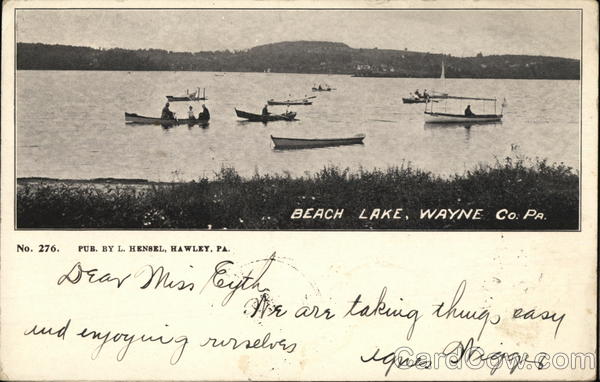 BEACH LAKE, WAYNE Co. Pa.
No. 276. PUB. BY L. HENSEL, HAWLEY, PA.
Dear Miss
We are taking things easy
and enjoying ourselves
CardCow.com